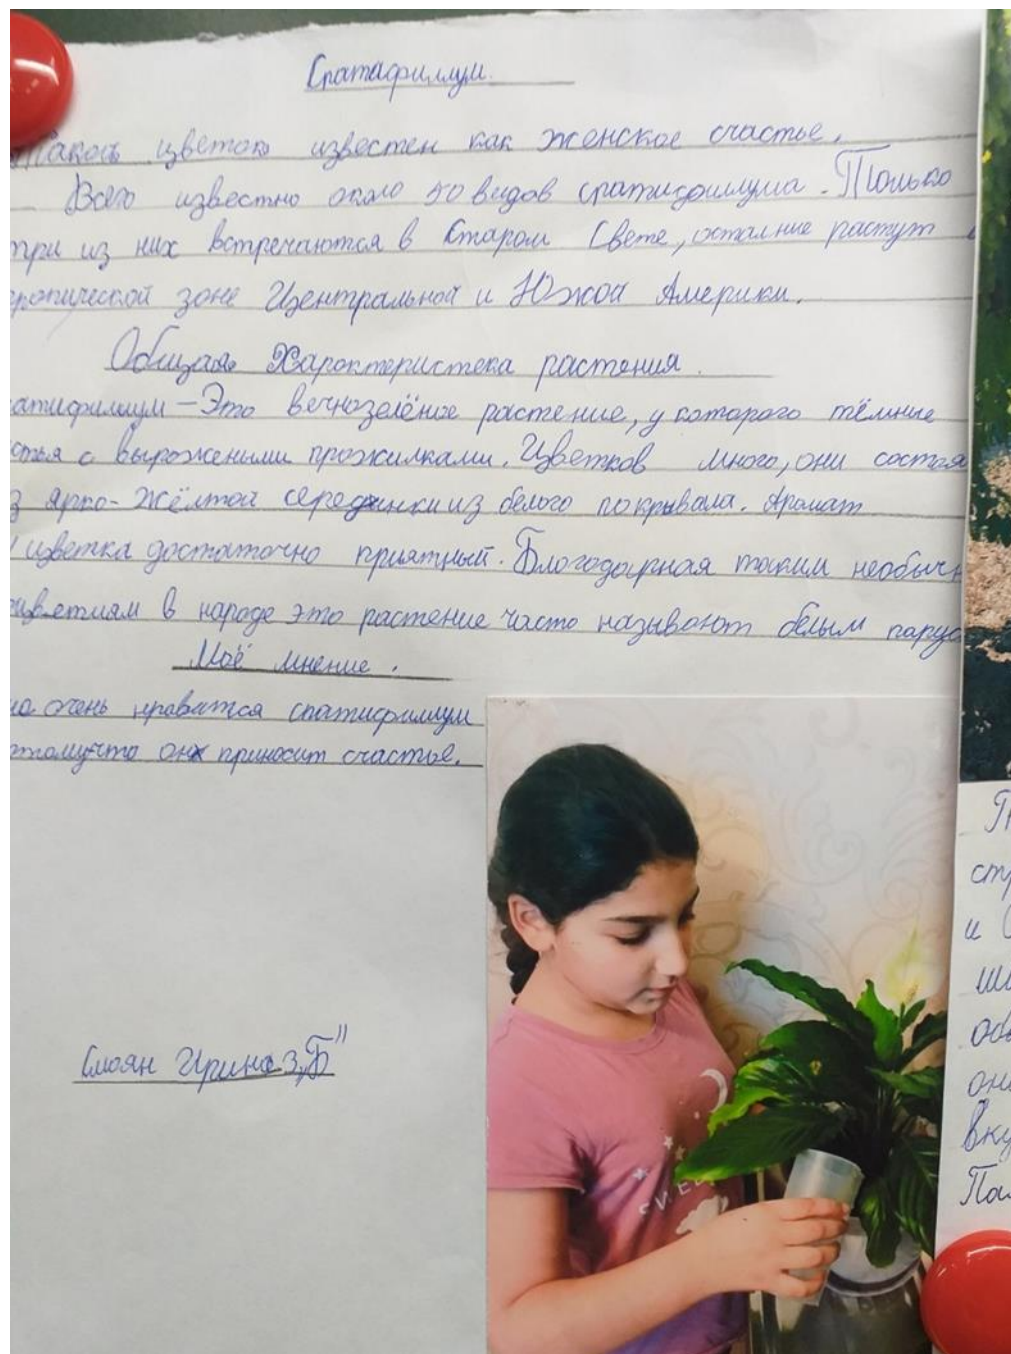 Спатифиллум.
Такой цветок известен как женское счастье.
Всего известно около 50 видов спатифиллума. Только
три из них встречаются в Старом Свете, осталние растут
тропической зоне Центральной и Южой Америки.
Общая Характеристека растения.
атифиллум – Это вечнозелёное растение, у которого тёмние
стья с вырожеными прожилками. Цветков много, они состоя
з ярко-жёлтой серединки из белого покрывала. Аромат
цветка достаточно приятный. Благодарная таким необычн
цветиям в народе это растение часто называют белым пару
Моё мнение.
очень нравится спатифиллум
этому что он приносит счастье.
Смоян Ирина 3„Б"
ст
и
ши
обы
они
вку
Пал